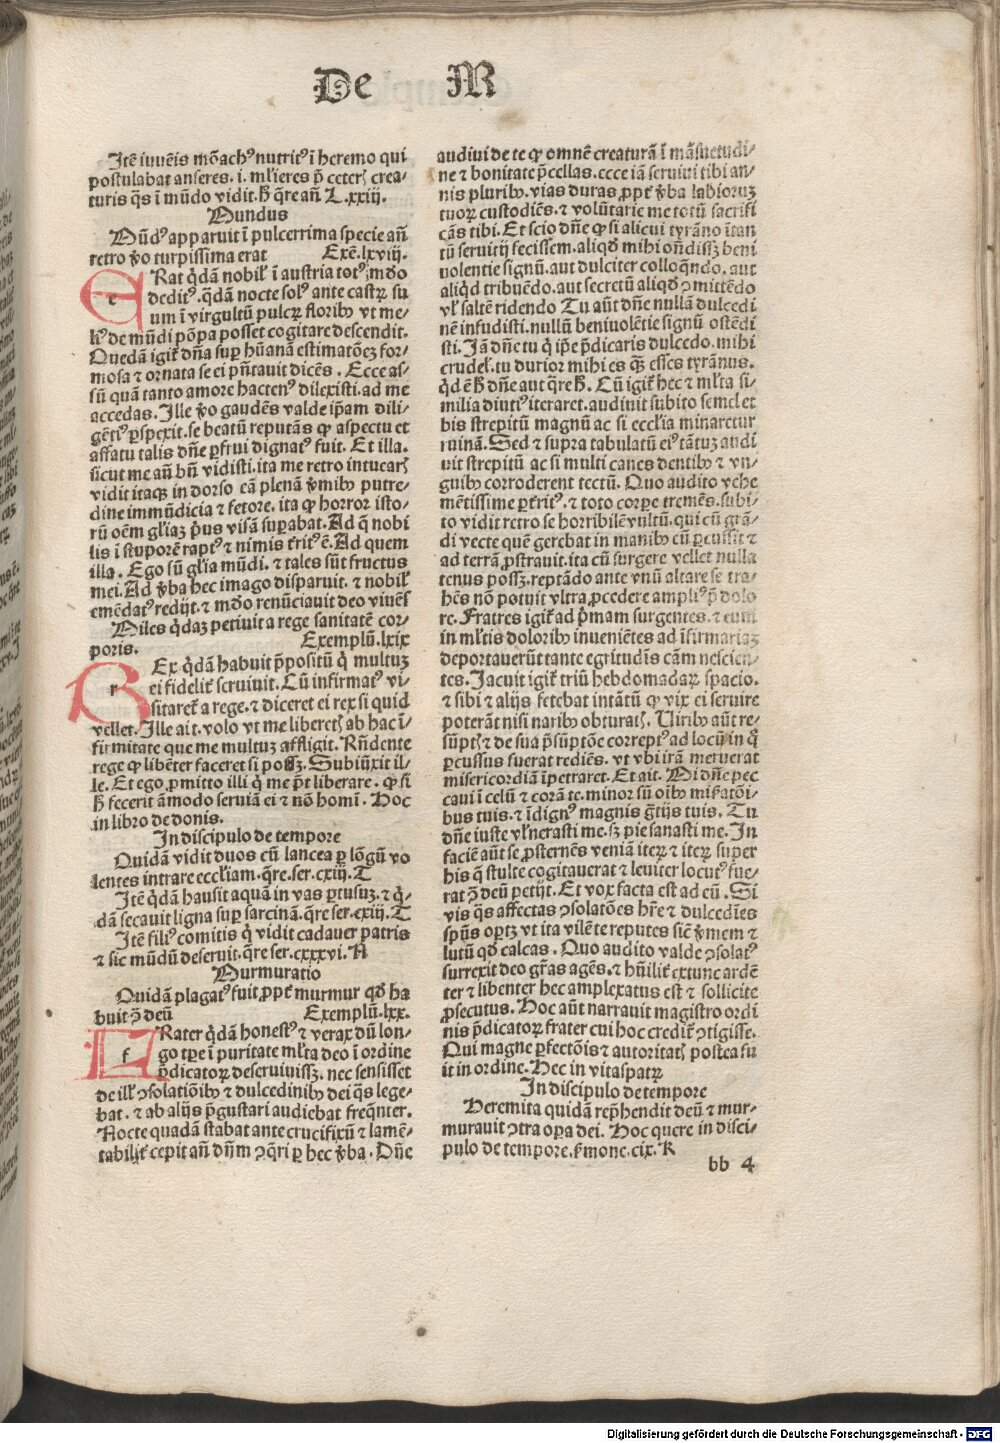 De M
Itē iuvēis mōachꝰ nutritꝰ ī heremo qui
postulabat anseres. i. mľieres p̄ ceteris crea-
turis q̄s ī mūdo vidit. h̄ q̄re añ L. xxiij.
Mundus
Mūdꝰ apparuit ī pulcerrima specie añ
retro ṽo turpissima erat Exē. lxviij.
ERat q̇dā nobiľ ī austria totꝰ mūdo
deditꝰ. q̇dā nocte solꝰ ante castꝝ su
um ī virgultū pulcꝝ floribꝫ vt me-
liꝰ de mūdi pōpa posset cogitare descendit.
Quedā igiť dn̄a suꝑ hūanā estimatōeꝫ for-
mosa ⁊ ornata se ei pn̄tauit dicēs. Ecce as-
sū quā tanto amore hactenꝰ dilexisti. ad me
accedas. Ille ṽo gaudēs valde ip̄am dili-
gētiꝰ ꝑspexit. se beatū reputās ꝙ aspectu et
affatu talis dn̄e ꝑfrui dignatꝰ fuit. Et illa.
sicut me añ bn̄ vidisti. ita me retro intuearis
vidit itaqꝫ in dorso eā plenā ṽmibꝫ putre-
dine immūdicia ⁊ fetore. ita ꝙ horror isto-
rū oēm gľiaꝫ p̓us visā suꝑabat. Ad q̄ nobi
lis ī stuporē raptꝰ ⁊ nimis ťritꝰ ē. Ad quem
illa. Ego sū gľia mūdi. ⁊ tales sūt fructus
mei. Ad ṽba hec imago disparuit. ⁊ nobiľ
emēdatꝰ redijt. ⁊ mūdo renūciauit deo viuēs
Miles q̇daꝫ petiuit a rege sanitatē cor-
poris. Exemplū. lxix
REx q̇dā habuit p̄positū q̇ multuꝫ
ei fideliť seruiuit. Cū infirmatꝰ vi-
sitareť a rege. ⁊ diceret ei rex si quid
vellet. Ille ait. volo vt me liberetis ab hac ī-
firmitate que me multuꝫ affligit. Rn̄dente
rege ꝙ libēter faceret si possꝫ. Subiūxit il-
le. Et ego ꝓmitto illi q̇ me p̄t liberare. ꝙ si
h̄ fecerit āmodo seruiā ei ⁊ nō homī. Hoc
in libro de donis.
In discipulo de tempore
Quidā vidit duos cū lancea ꝑ lōgū vo
lentes intrare eccľiam. q̄re. ser. cxiij. T
Itē q̇dā hausit aquā in vas ꝑtusuꝫ. ⁊ q̇-
dā secauit ligna suꝑ sarcinā. q̄re ser. cxiij. T
Itē filiꝰ comitis q̇ vidit cadauer patris
⁊ sic mūdū deseruit. q̄re ser. cxxxvi. A
Murmuratio
Quidā plagatꝰ fuit ꝓpť murmur qd̄ ha
buit ꝯ̄ deū Exemplū. lxx.
FRater q̇dā honestꝰ ⁊ verax dū lon-
go tꝑe ī puritate mľta deo ī ordine
p̄dicatoꝝ deseruiuissꝫ. nec sensisset
de illis ꝯsolatiōibꝫ ⁊ dulcedinibꝫ dei q̄s lege-
bat. ⁊ ab alijs p̄gustari audiebat freq̄nter.
Nocte quadā stabat ante crucifixū ⁊ lamē-
tabiliť cepit añ dn̄m ꝯq̄ri ꝑ hec ṽba. Dn̄e
audiui de te ꝙ omnē creaturā ī māsuetudi-
ne ⁊ bonitate p̄cellas. ecce iā seruiui tibi an-
nis pluribꝫ. vias duras ꝓpť ṽba labioruꝫ
tuoꝝ custodiēs. ⁊ volūtarie me totū sacrifi
cās tibi. Et scio dn̄e ꝙ si alicui tyrāno ītan
tū seruitij fecissem. aliqd̄ mihi on̄dissꝫ beni
uolentie signū. aut dulciter colloq̄ndo. aut
aliqd̄ tribuēdo. aut secretū aliqd̄ ꝯmittēdo
vľ saltē ridendo Tu aūt dn̄e nullā dulcedi
nē infudisti. nullū beniuolētie signū ostēdi
sti. Iā dn̄e tu q̇ ip̄e p̄dicaris dulcedo. mihi
crudeľ. tu durior mihi es q̄ꝫ esses tyrānus.
qd̄ ē h̄ dn̄e aut q̄re h̄. Cū igiť hec ⁊ mľta si-
milia diutiꝰ iteraret. audiuit subito semel et
bis strepitū magnū ac si eccľia minaretur
ruinā. Sed ⁊ supra tabulatū eiꝰ tātuꝫ audi
uit strepitū ac si multi canes dentibꝫ ⁊ vn-
guibꝫ corroderent tectū. Quo audito vehe
mētissime ꝑťritꝰ. ⁊ toto corꝑe tremēs. subi-
to vidit retro se horribilē vultū. qui cū grā-
di vecte quē gerebat in manibꝫ cū ꝑcussit ⁊
ad terrā ꝓstrauit. ita cū surgere vellet nulla
tenus possꝫ. reptādo ante vnū altare se tra-
hēs nō potuit vltra ꝓcedere ampliꝰ p̄ dolo
re. Fratres igiť ad p̓mam surgentes. ⁊ eum
in mľtis doloribꝫ inueniētes ad īfirmariaꝫ
deportauerūt tante egritudīs cām nescien-
tes. Iacuit igiť triū hebdomadaꝝ spacio.
⁊ sibi ⁊ alijs fetebat intātū ꝙ vix ei seruire
poterāt nisi naribꝫ obturatis. Uiribꝫ aūt re-
sūptis ⁊ de sua p̄sūptōe correptꝰ ad locū in q̊
ꝑcussus fuerat rediēs. vt vbi irā meruerat
misericordiā īpetraret. Et ait. Mi dn̄e pec
caui ī celū ⁊ corā te. minor sū oībꝫ miᵽatōi-
bus tuis. ⁊ īdignꝰ magnis gr̄tijs tuis. Tu
dn̄e iuste vľnerasti me. sꝫ pie sanasti me. In
faciē aūt se ꝓsternēs veniā iteꝝ ⁊ iteꝝ super
his q̄ stulte cogitauerat ⁊ leuiter locutꝰ fue-
rat ꝯ̄ deū petijt. Et vox facta est ad eū. Si
vis q̄s affectas ꝯsolatōes hr̄e ⁊ dulcedīes
sp̄ūs oportꝫ vt ita vilē te reputes sic̄ ṽmem ⁊
lutū qd̄ calcas. Quo audito valde ꝯsolatꝰ
surrexit deo gr̄as agēs. ⁊ hūiliť extunc ardē
ter ⁊ libenter hec amplexatus est ⁊ sollicite
ꝓsecutus. Hoc aūt narrauit magistro ordi
nis p̄dicatoꝝ frater cui hoc crediť ꝯtigisse.
Qui magne ꝑfectōis ⁊ autoritatis postea fu
it in ordine. Hec in vitaspatꝝ
In discipulo de tempore
Heremita quidā rep̄hendit deū ⁊ mur-
murauit ꝯtra oꝑa dei. Hoc quere in disci-
pulo de tempore. ẜmone. cix. K
bb 4
Digitalisierung gefördert durch die Deutsche Forschungsgemeinschaft - DFG